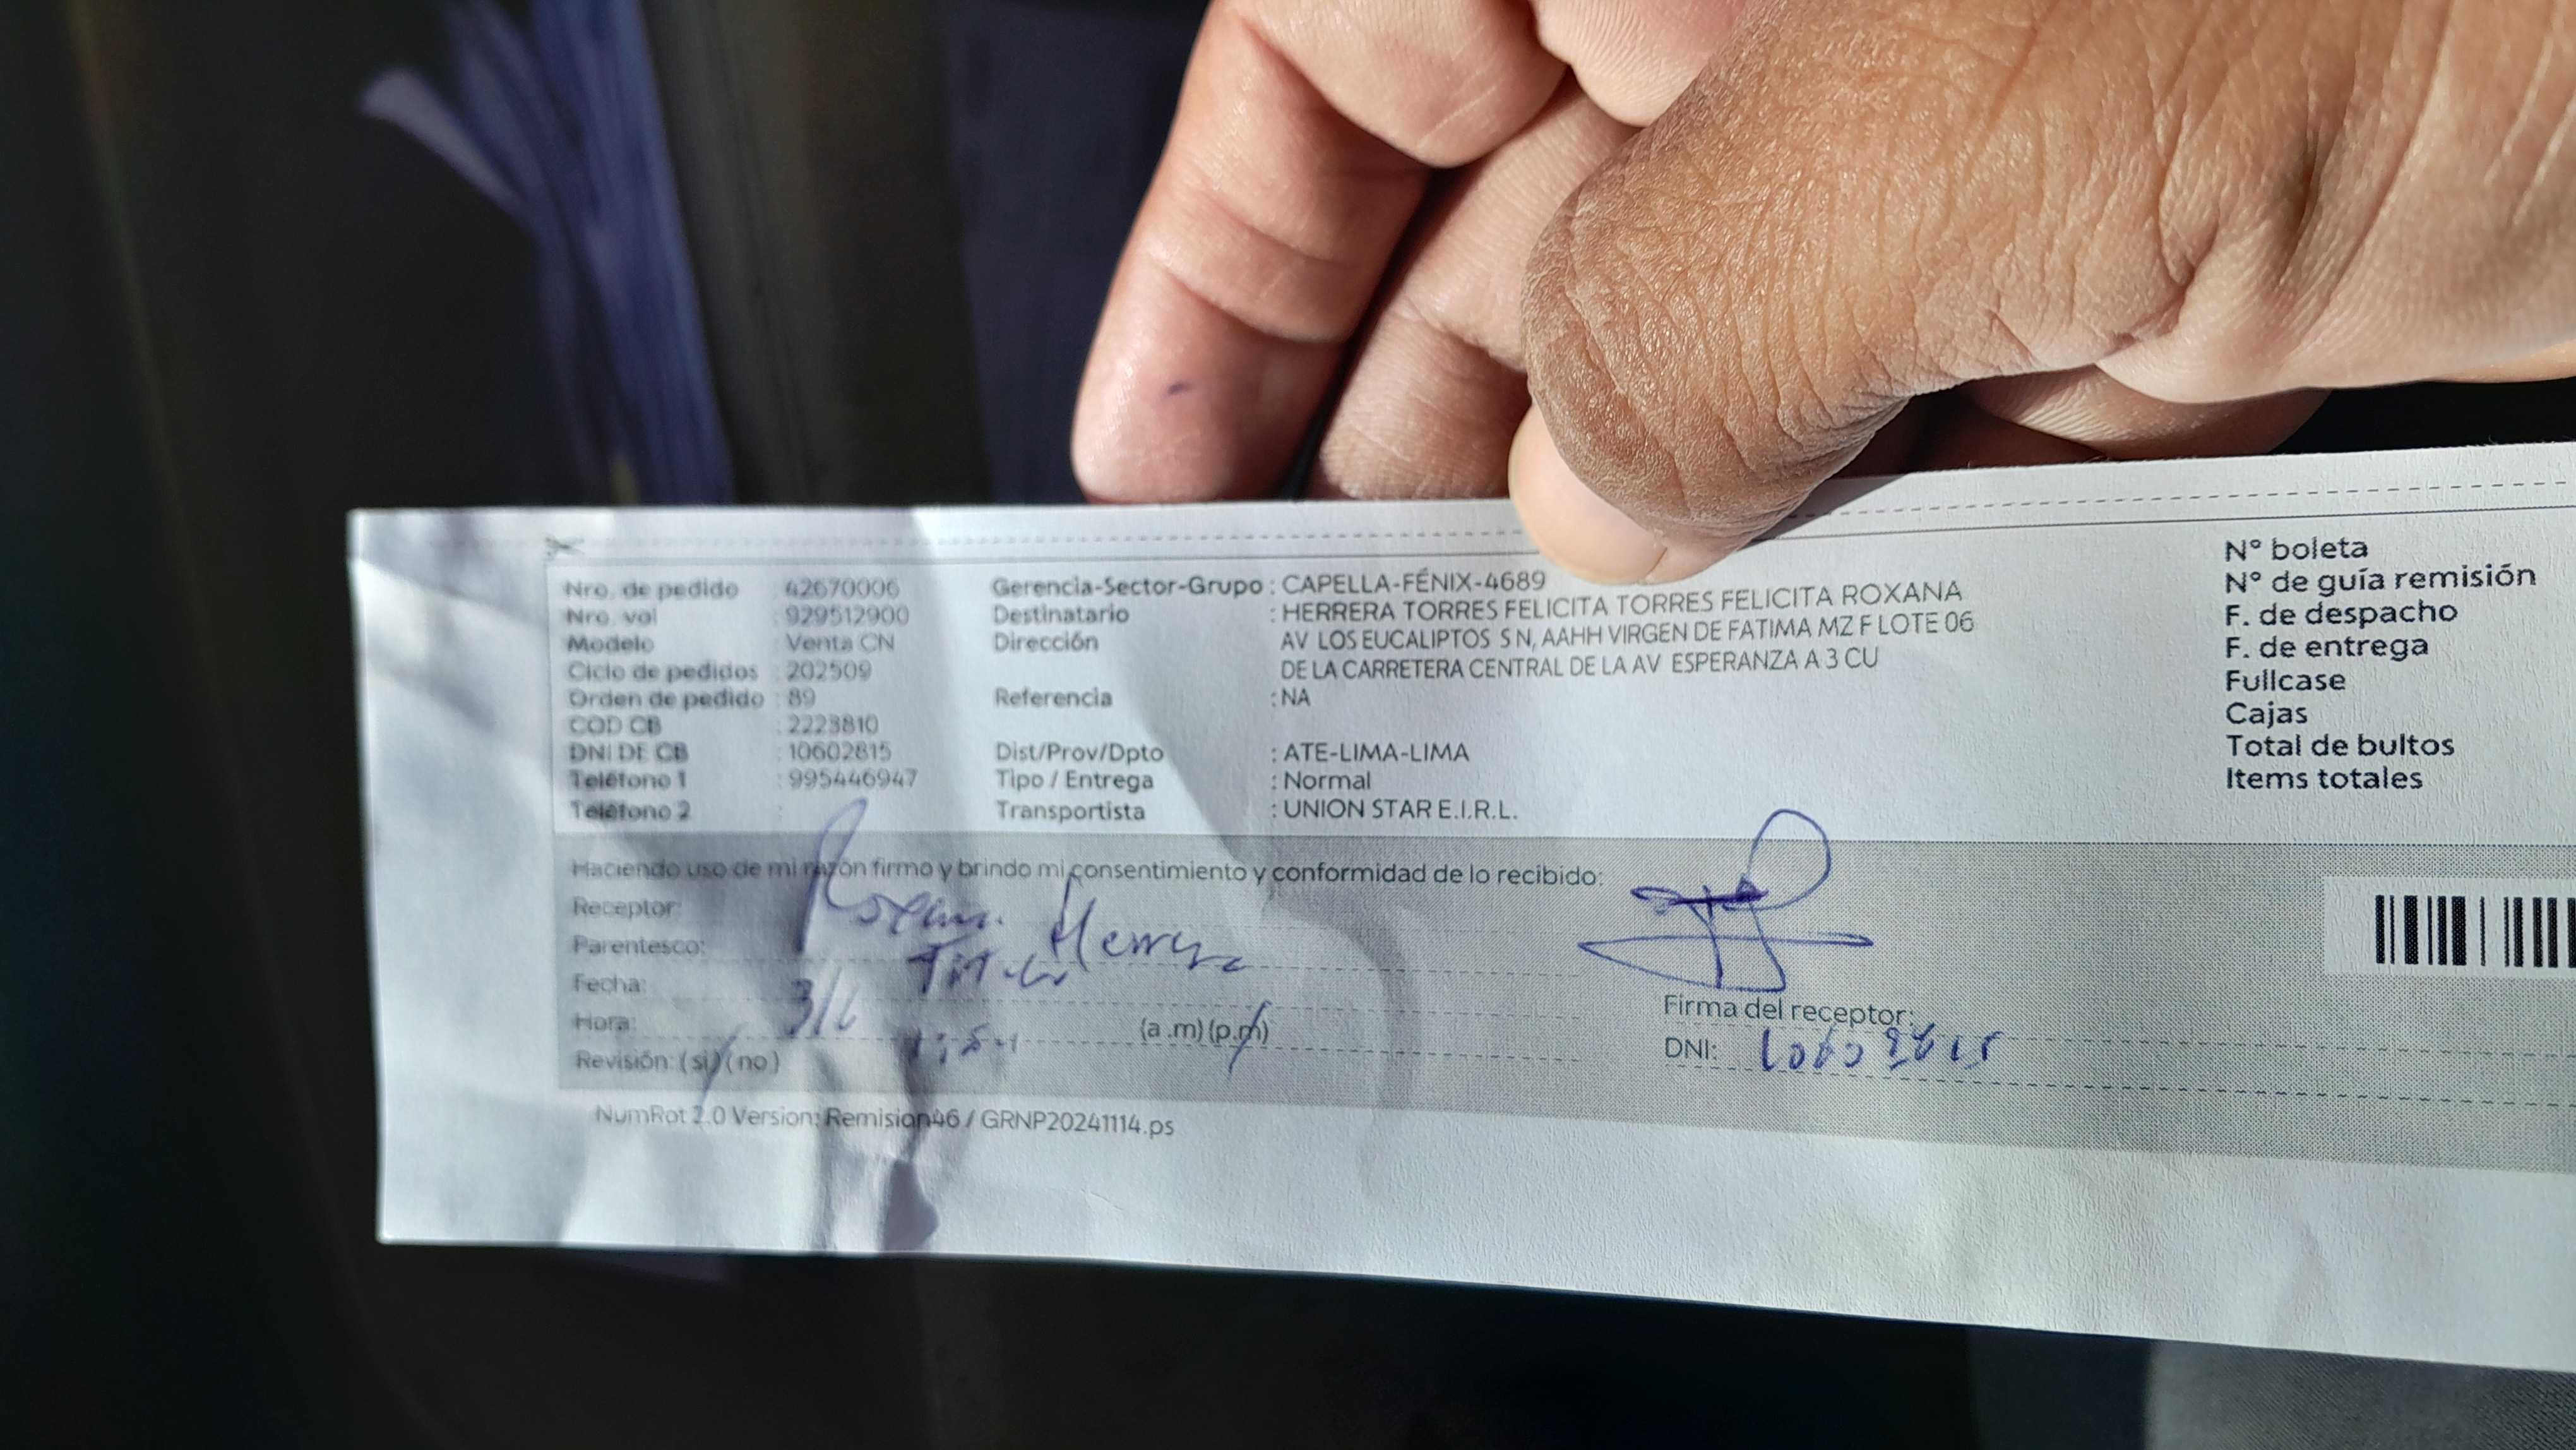 Nro. de pedido : 42670006 Gerencia-Sector-Grupo : CAPELLA-FÉNIX-4689 N° boleta
Nro. vol : 929512900 Destinatario : HERRERA TORRES FELICITA TORRES FELICITA ROXANA N° de guía remisión
Modelo : Venta CN Dirección : AV LOS EUCALIPTOS S N, AAHH VIRGEN DE FATIMA MZ F LOTE 06 F. de despacho
Ciclo de pedidos : 202509 DE LA CARRETERA CENTRAL DE LA AV ESPERANZA A 3 CU F. de entrega
Orden de pedido : 89 Referencia : NA Fullcase
COD CB : 2223810 Cajas
DNI DE CB : 10602815 Dist/Prov/Dpto : ATE-LIMA-LIMA Total de bultos
Teléfono 1 : 995446947 Tipo / Entrega : Normal Items totales
Teléfono 2 : Transportista : UNION STAR E.I.R.L.
Haciendo uso de mi razón firmo y brindo mi consentimiento y conformidad de lo recibido:
Receptor: Roxana Herrera
Parentesco: Titular
Fecha: 3/6
Hora: (a .m) (p.m)
Revisión: ( si ) ( no )
Firma del receptor:
DNI: 10602815
NumRot 2.0 Version: Remision46 / GRNP20241114.ps